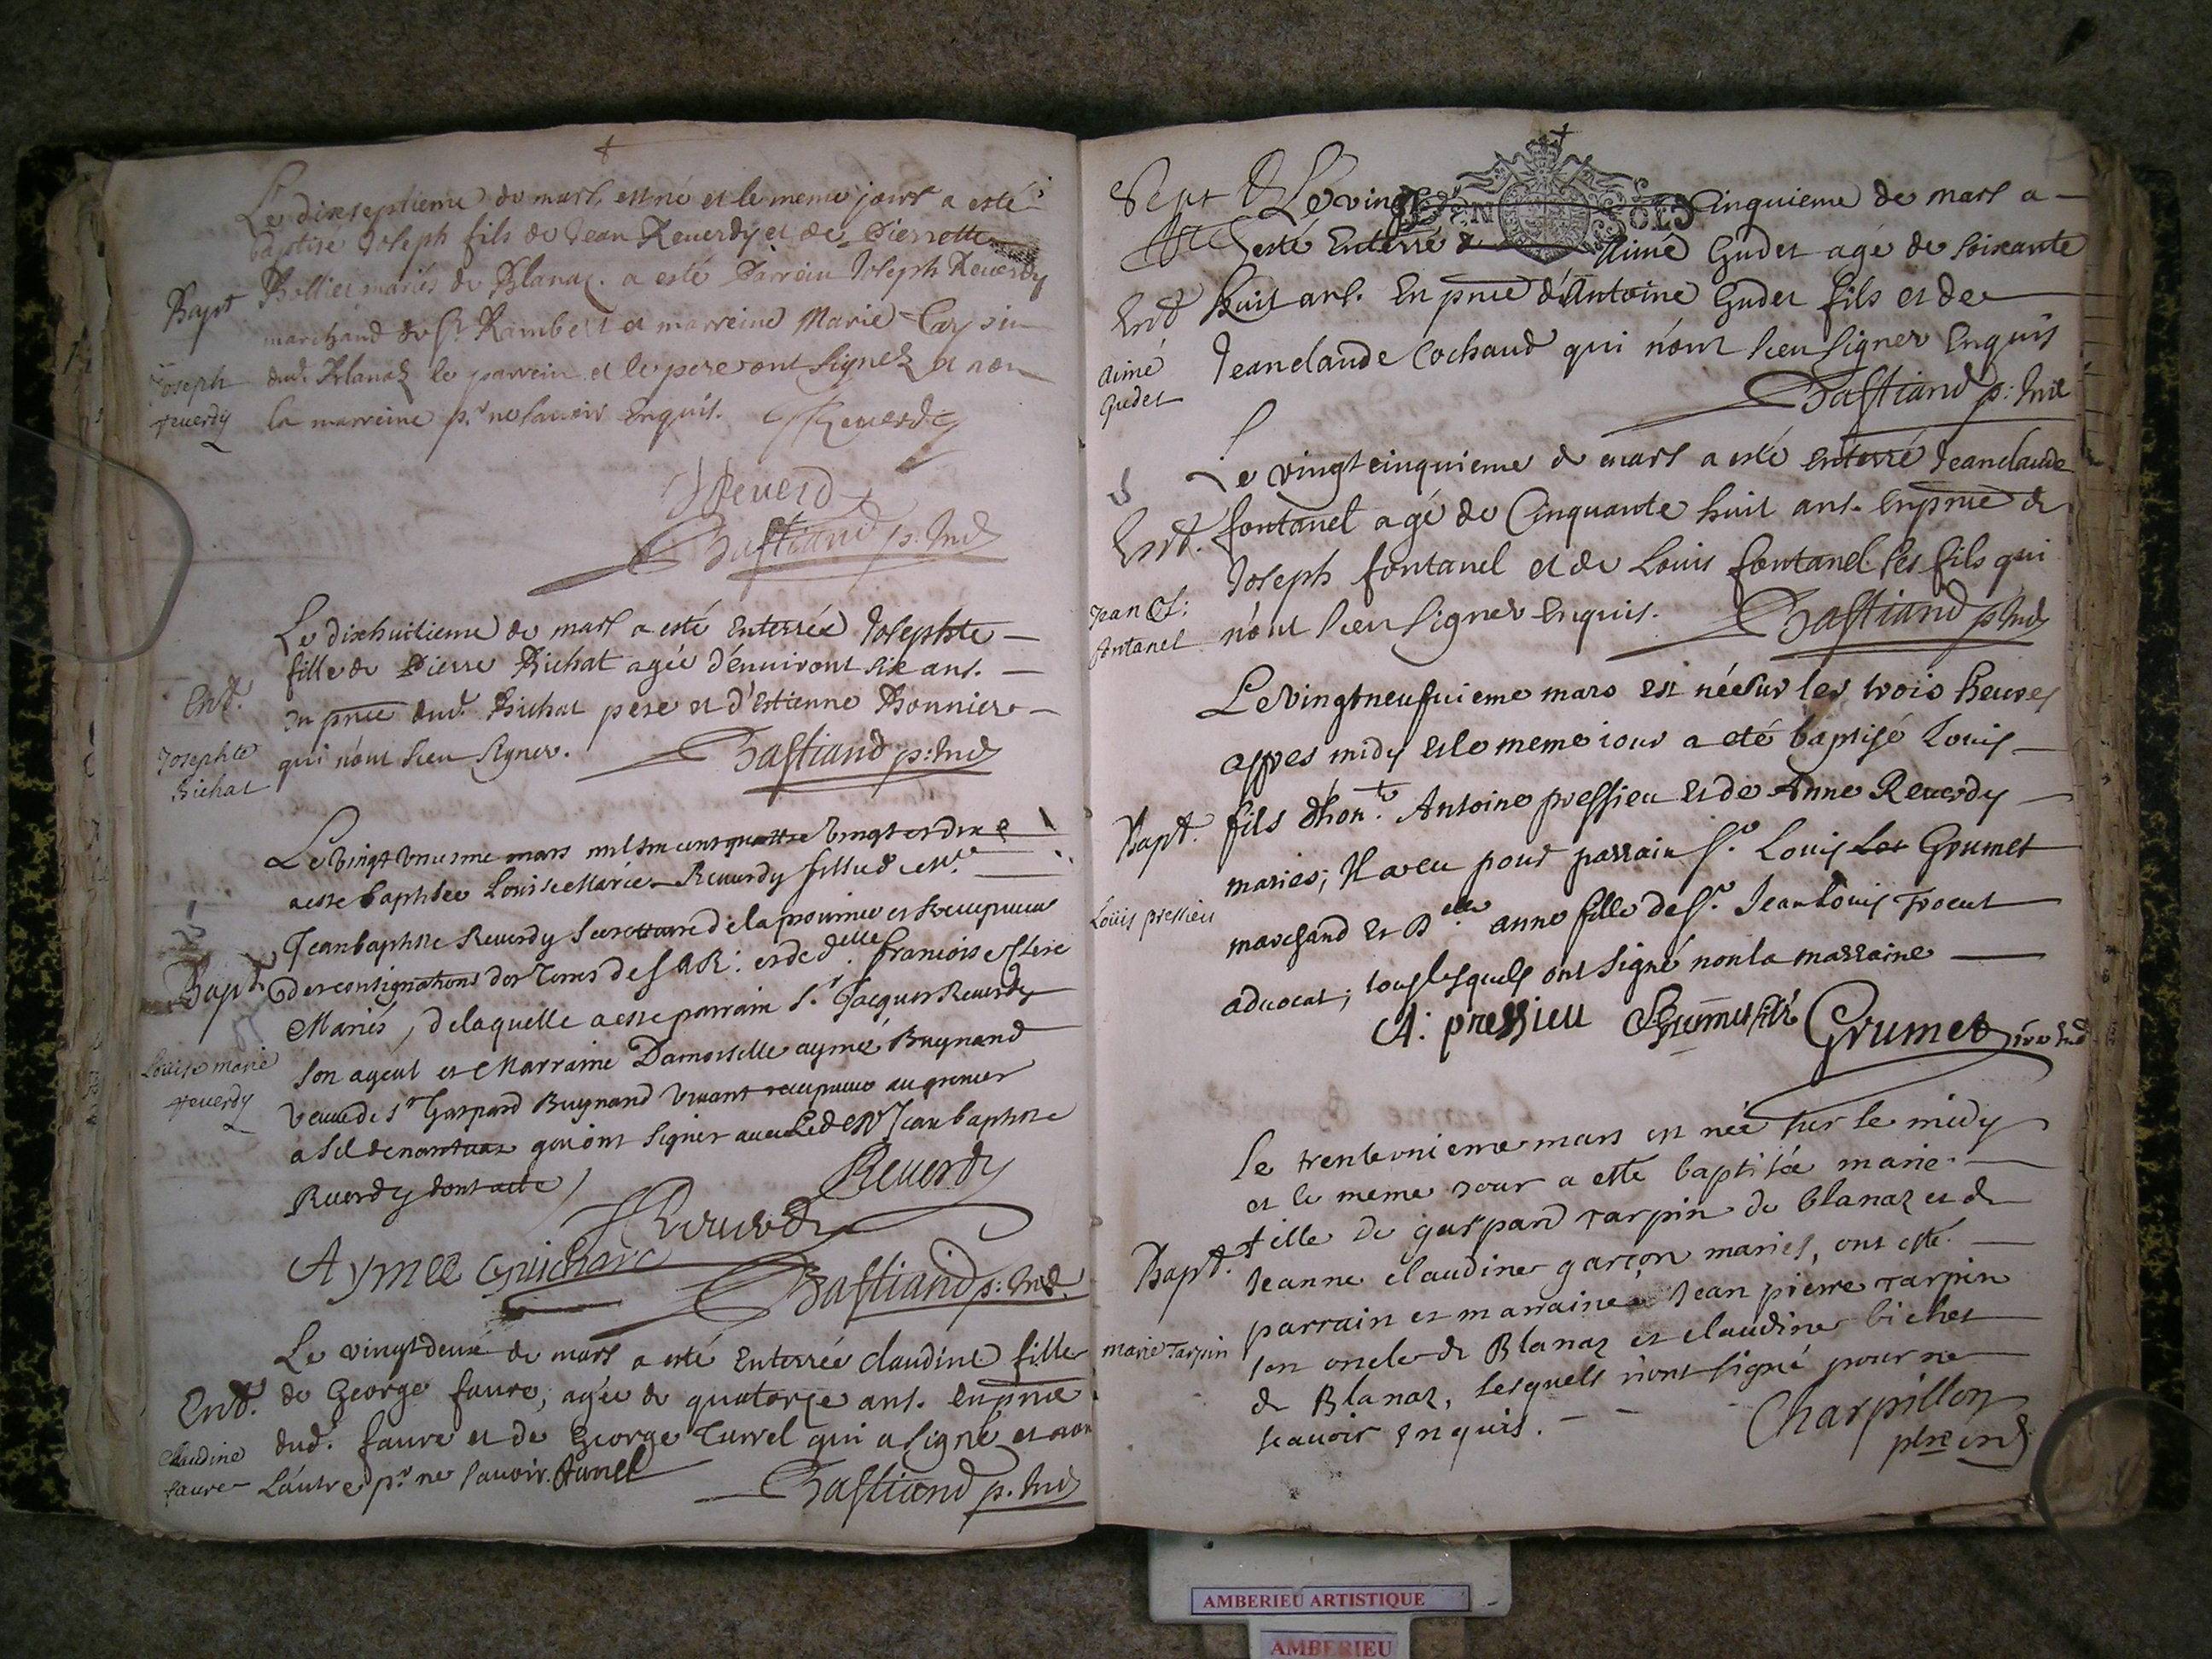 Le dixseptieme de mars, est né et le meme jour a esté
baptisé Joseph fils de Jean Reverdy et de Pierrette
Bollier mariés de Blanaz. a esté Parrein Joseph Reverdy
Bapt
marchand de St. Rambert et marreine Marie
dud. Blanaz le parrein et le pere ont signez et non
la marreine pr. ne savoir enquis. Reverdy
Joseph
reverdy
J Reverdy
Bastiand p: Ind
Le dixhuitieme de mars a esté enterrée Josephte
fille de Pierre Bichat agée d'environt six ans.
en pnce dud. Bichat pere et d'Estienne Bonnier
qui n'ont sceu signer. Bastiand p: Ind
Ent.
Josephte
Bichat
Le vingt unieme mars mil six cent quattre vingt et dix
a esté baptisée Louise Marie Reverdy fillie de Mr.
Jean baptiste Reverdy Secrettaire de la province et Receveur
des consignations des Terres de S A R: et de delle. francoise Clerc
Mariés, de laquelle a esté parrain Sr. Jacques Reverdy
son ayeul et Marraine Damoiselle aymée Buynand
veuve de Sr Gaspard Buynand vivant receveur au grenier
a sel de nantuaz qui ont signer avec led Mr Jean baptiste
Reverdy dont acte
Bapt
Louise marie
reverdy
Reverdy
J Reverdy
Aymee Guichard
Bastiand p: Ind.
Le vingtdeux de mars a esté enterrée claudine fille
de George faure, agée de quatorze ans. en pnce
dud. faure et de George Turrel qui a signé et non
l'autre pr. ne savoir. turrel
Bastiand p. Ind
Ent.
Claudine
faure
Sept
Le vingt cinquieme de mars a
esté enterré Aimé Gudet agé de soixante
huit ans. En pnce d'Antoine Gudet fils et de
Jeanclaude Cochaud qui n'ont sceu signer enquis
Bastiand p: Ind
Ent
aimé
Gudet
Le vingtcinquieme de mars a esté enterré Jeanclaude
fontanel agé de Cinquante huit ans. En pnce de
Joseph fontanel et de Louis fontanel ses fils qui
n'ont sceu signer enquis. Bastiand p Ind
Ent.
Jean Cl:
fontanel
Le vingtneufuieme mars est née sur les trois heures
appres midy et le meme iour a eté baptisé Louis
fils d'hon.te Antoine pressieu et de Anne Reverdy
maries; Il a eu pour parrain Sr. Louis Grumet
marchand et Delle anne fille de Sr. Jean Louis Trocut
advocat; tous lesquels ont signé non la marraine
Bapt.
Louis pressieu
A: pressieu Grumet Grumet
Le trenteunieme mars est née sur le midy
et le meme jour a esté baptisée marie
fille de gaspard tarpin de blanaz et de
Jeanne claudine garçon mariés, ont esté
parrain et marraine Jean pierre tarpin
son oncle de Blanaz et claudine bichet
de Blanaz, lesquels n'ont signé pour ne
scavoir enquis.
Bapt.
marie Tarpin
Charpillon
ptre ind
AMBERIEU ARTISTIQUE
AMBERIEU